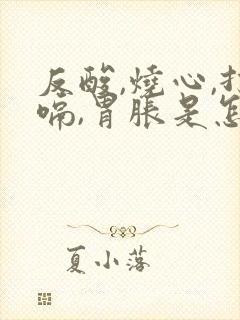 反酸,燒心,打
嗝,胃脹是怎
夏小落